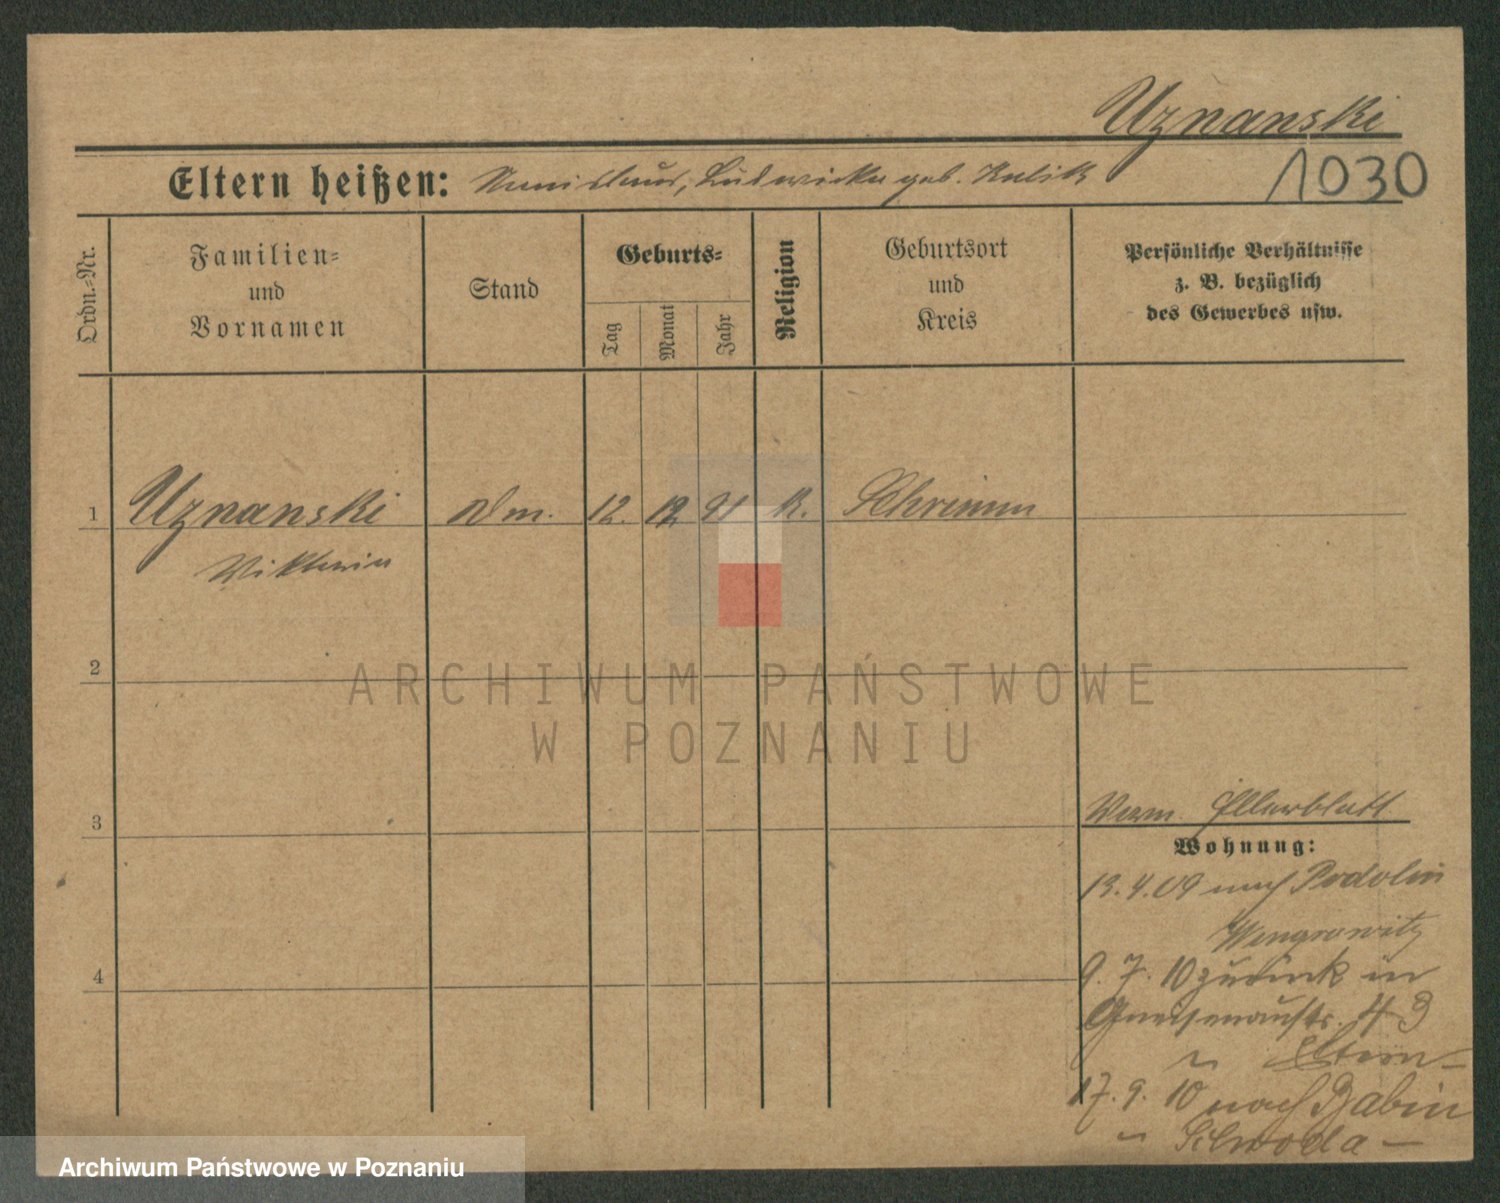 Uznanski
1030
Eltern heißen: Stanislaus, Ludwicka geb. Kulik
Ordn.-Nr.
Familien-
und
Vornamen
Stand
Geburts-
Tag
Monat
Jahr
Religion
Geburtsort
und
Kreis
Persönliche Verhältnisse
z. B. bezüglich
des Gewerbes usw.
1 Uznanski 12. 12 91 K. Schrimm
Viktoria
2
ARCHIWUM PAŃSTWOWE
W POZNANIU
3
Elternblatt
Wohnung:
13.4.09 nach Podolin
Wongrowitz
9. 7. 10 zurück in
Gneisenaustr. 43
Eltern
17. 9. 10 nach Babin
4
Archiwum Państwowe w Poznaniu